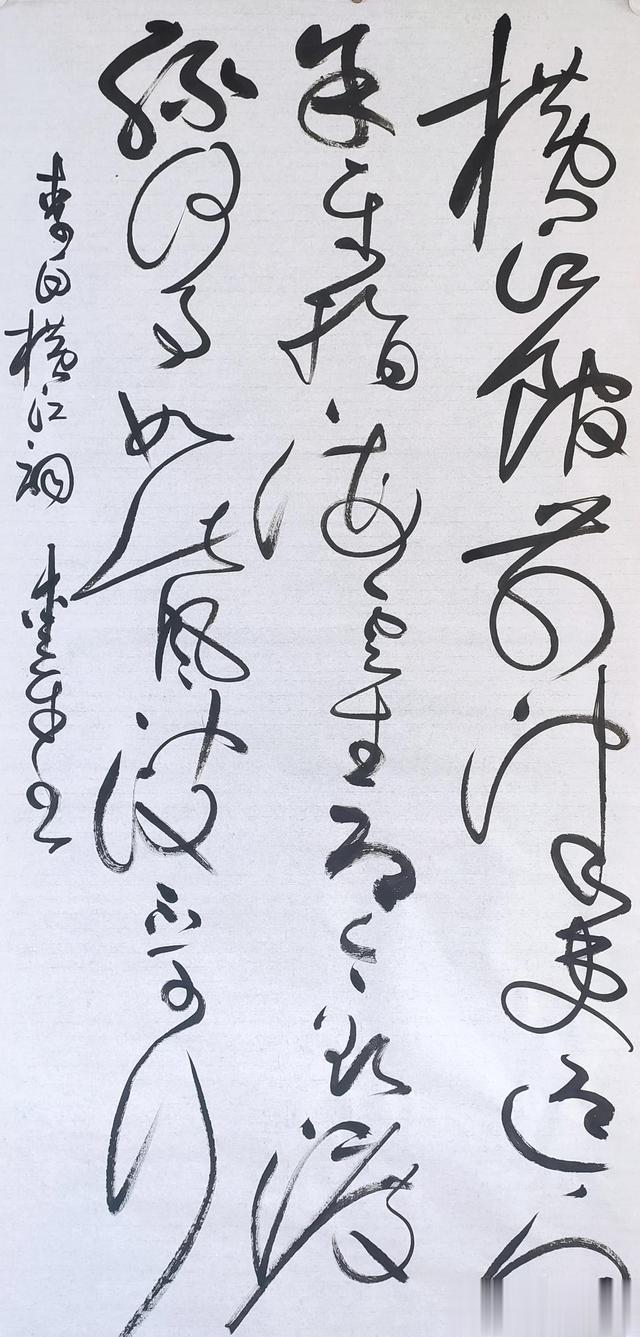 横江馆前津吏迎向
余东指海云生郎今欲渡
缘何事如此风波不可行
李白横江词